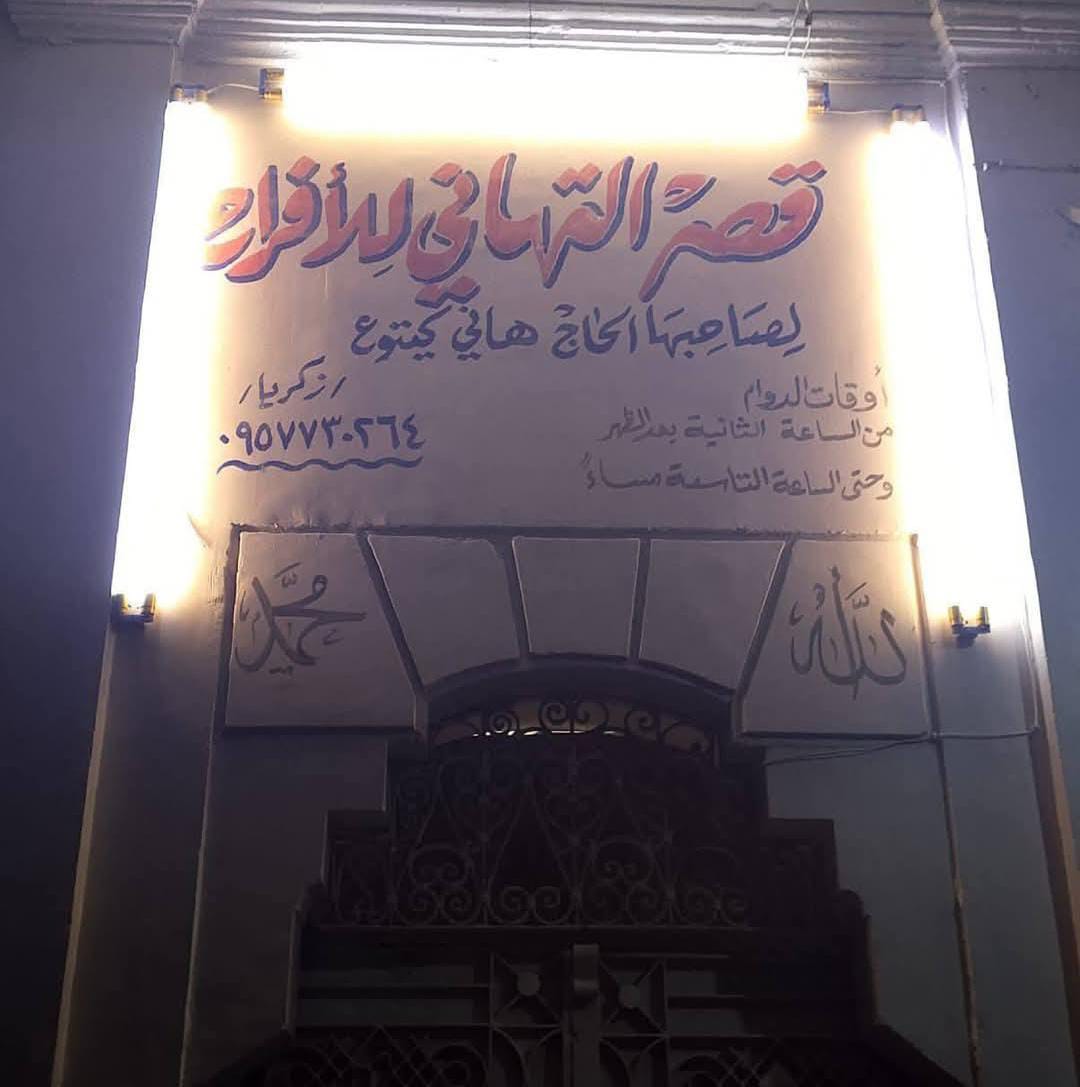 قصر التهاني للأفراح
لصاحبها الحاج هاني كينتوع
أوقات الدوام
من الساعة الثانية بعد الظهر
وحتى الساعة التاسعة مساءً
/زكريا/
٠٩٥٧٧٣٠٢٦٤
الله
محمد